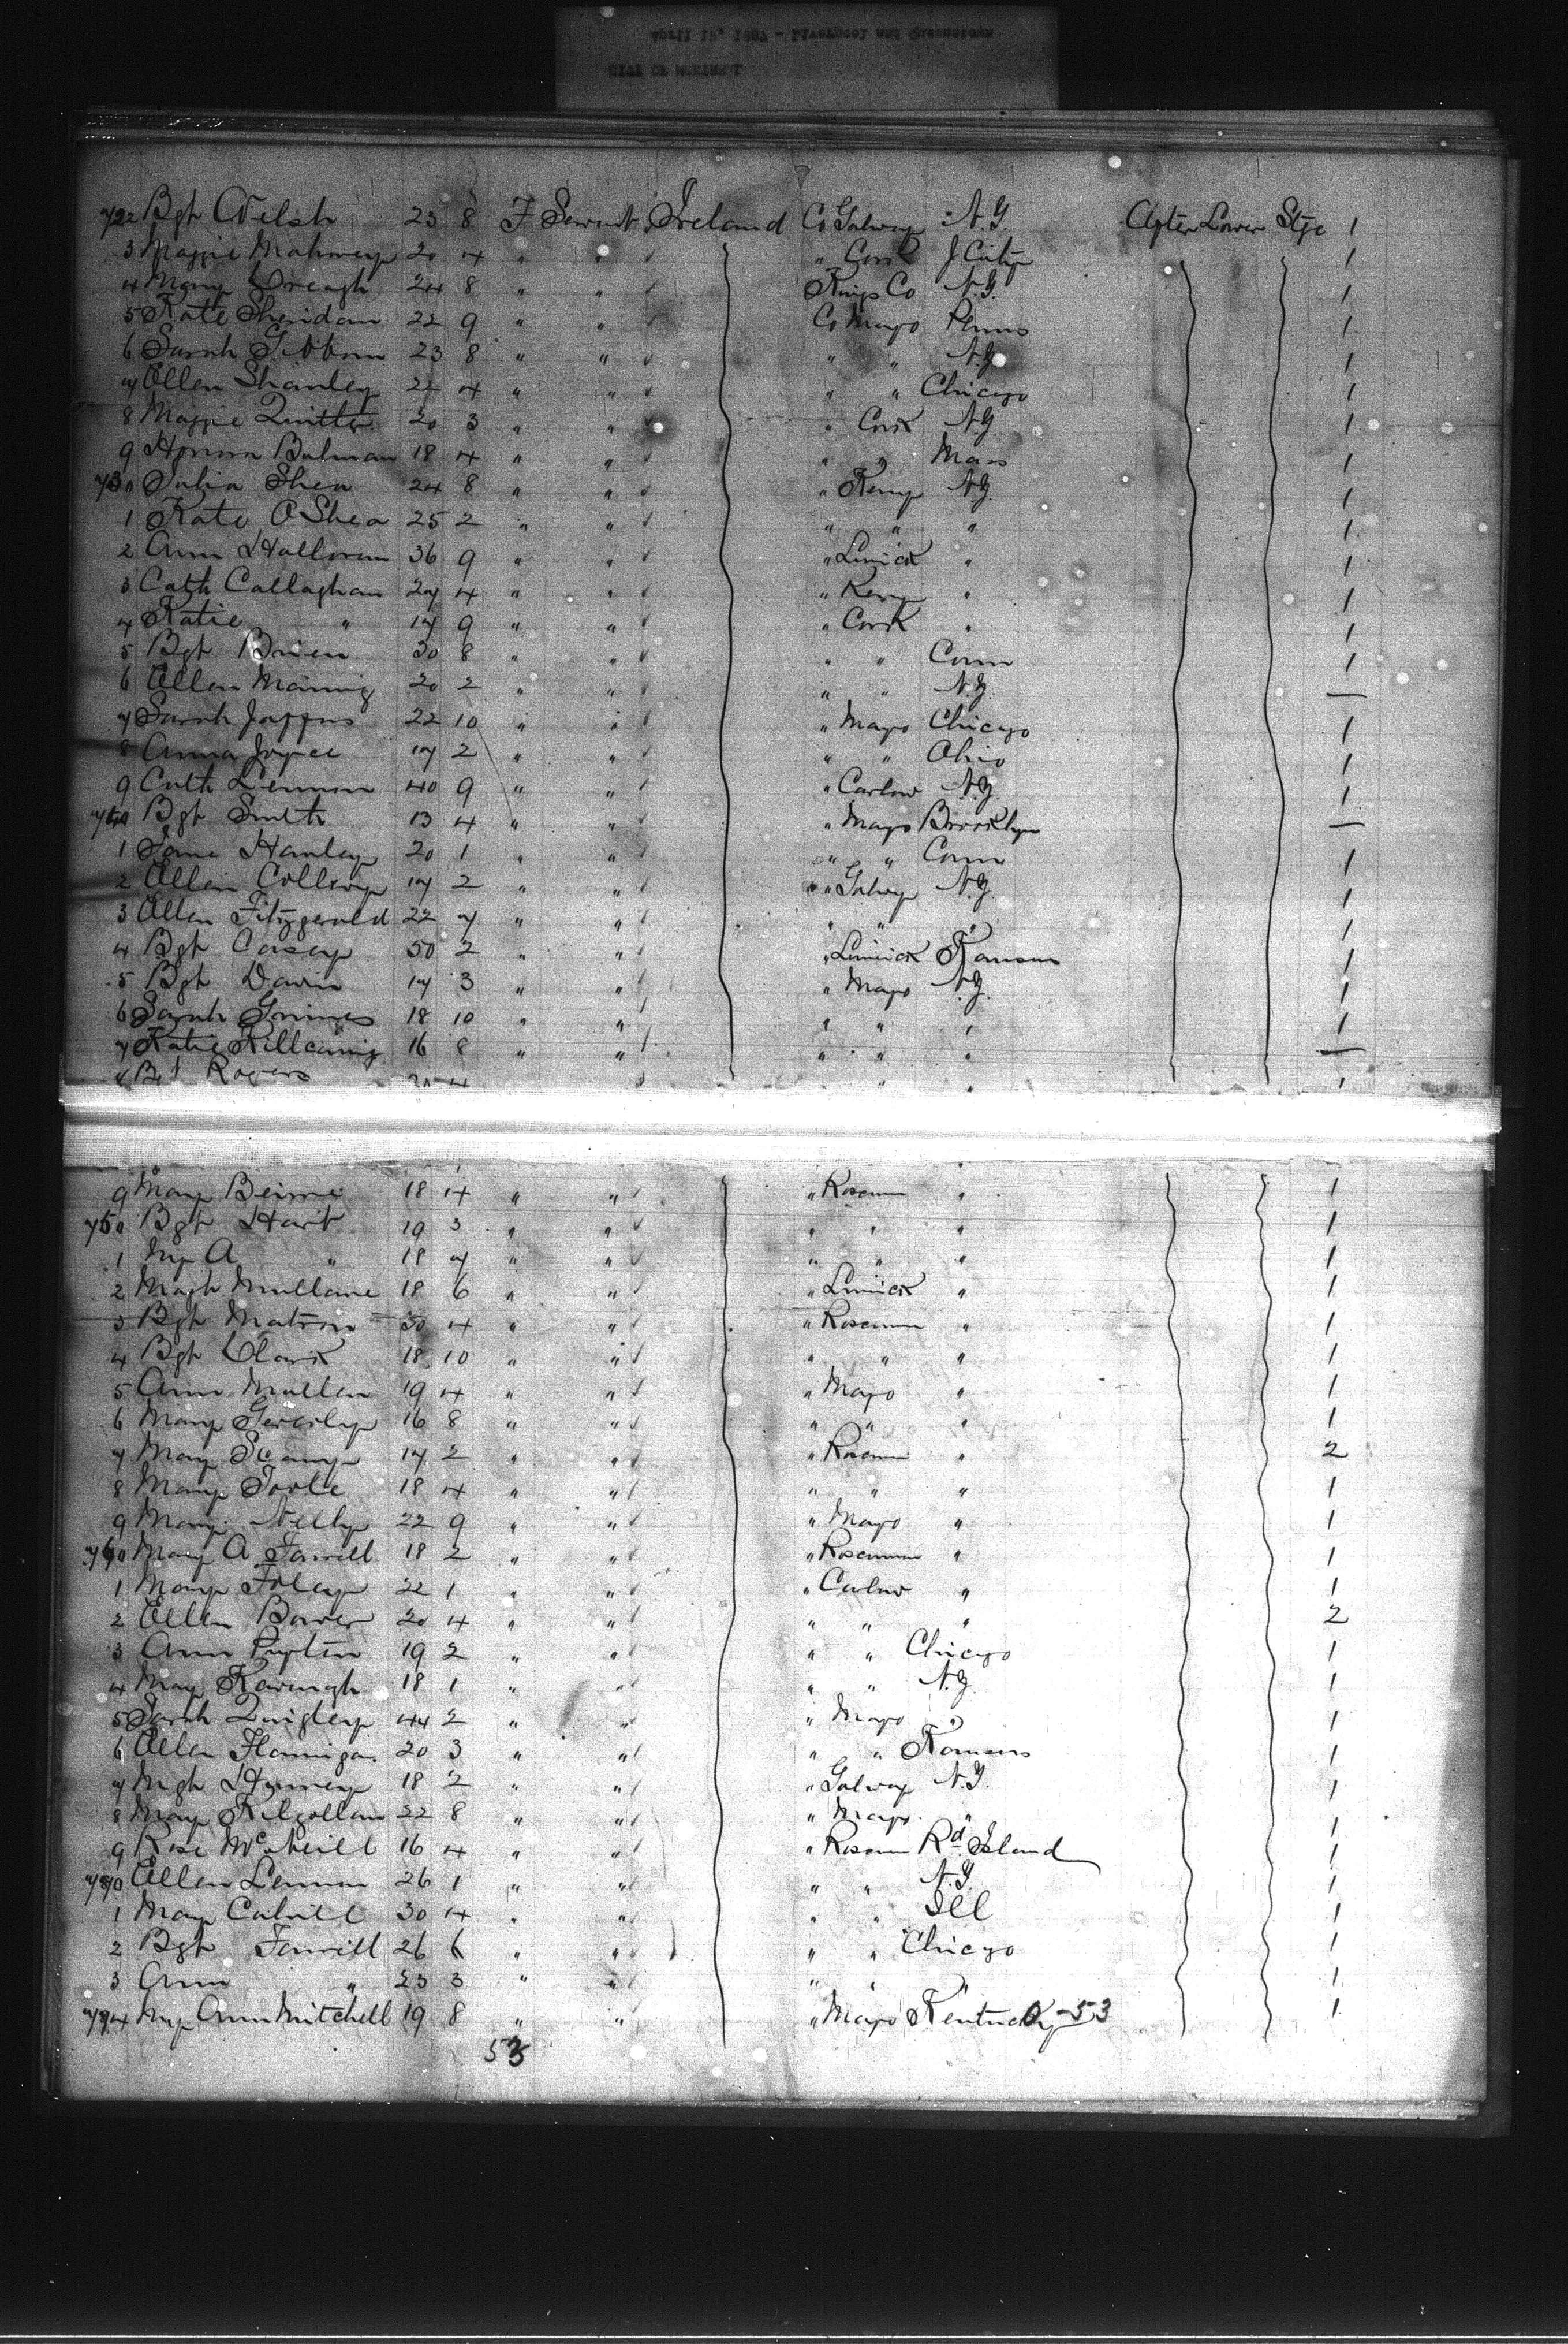 722 Bgt Welsh 23 8 F Servant Ireland Co Galway N.Y. After Lower Stge 1
3 Maggie Mahoney 20 4 " " " Cork J City 1
4 Mary 24 8 " " Kings Co N.Y. 1
5 Kate Sheridan 22 9 " " Co Mayo Penns 1
6 Sarah Gibbon 23 8 " " " " N.Y. 1
7 Ellen Shanley 22 4 " " " " Chicago 1
8 Maggie 20 3 " " " Cork N.Y. 1
9 Honora 18 4 " " " " Mass 1
730 Julia Shea 24 8 " " " Kerry N.Y. 1
1 Kate O Shea 25 2 " " " " " 1
2 Ann Halloran 36 9 " " " Limick " 1
3 Cath Callaghan 27 4 " " " Kerry " 1
4 Katie " 17 9 " " " Cork " 1
5 Bgt Brien 30 8 " " " " Conn 1
6 Ellen Mannig 20 2 " " " " N.Y. —
7 Sarah 22 10 " " " Mayo Chicago 1
8 Anna Joyce 17 2 " " " " Ohio 1
9 Cath Lennon 40 9 " " " Carlow N.Y. 1
740 Bgt Smith 13 4 " " " Mayo Brooklyn —
1 Jane Hanley 20 1 " " " " Conn 1
2 Ellen 17 2 " " " Galwy N.Y. 1
3 Ellen Fitzgerald 22 7 " " " " " 1
4 Bgt Casey 50 2 " " " Limick Kansas 1
5 Bgt Davin 17 3 " " " Mayo N.Y. 1
6 Sarah Grimes 18 10 " " " " " 1
7 Katie 16 8 " " " " " —
8 Bgt Rogers 4 " " 1
9 Mary Beirne 18 4 " " " Roscmn " 1
750 Bgt Hart 19 3 " " " " " 1
1 My A " 18 7 " " " " " 1
2 Magt Mullane 18 6 " " " Limick " 1
3 Bgt 30 4 " " " Roscmn " 1
4 Bgt Clark 18 10 " " " " " 1
5 Ann Mullen 19 4 " " " Mayo " 1
6 Mary 16 8 " " " " " 1
7 Mary 17 2 " " " Roscmn " 2
8 Mary Toole 18 4 " " " " " 1
9 Mary 22 9 " " " Mayo " 1
760 Mary A Farrell 18 2 " " " Roscmmn " 1
1 Mary Foley 22 1 " " " Carlow " 1
2 Ellen Bower 20 4 " " " " " 2
3 Ann 19 2 " " " " Chicago 1
4 Mary Kavingh 18 1 " " " " N.Y. 1
5 Sarah Quigley 44 2 " " " Mayo " 1
6 Ellen Flannigan 20 3 " " " " Kansas 1
7 Mgt 18 2 " " " Galway N.Y. 1
8 Mary Kilgallan 22 8 " " " Mayo " 1
9 Rose McNeill 16 4 " " " Roscmn Rd Island 1
770 Ellen Lennon 26 1 " " " " N.Y. 1
1 Mary 30 4 " " " " Ill 1
2 Bgt Farrell 26 6 " " " " Chicago 1
3 Ann " 23 3 " " " " " 1
774 My Ann Mitchell 19 8 " " " Mayo Kentucky - 53 1
53